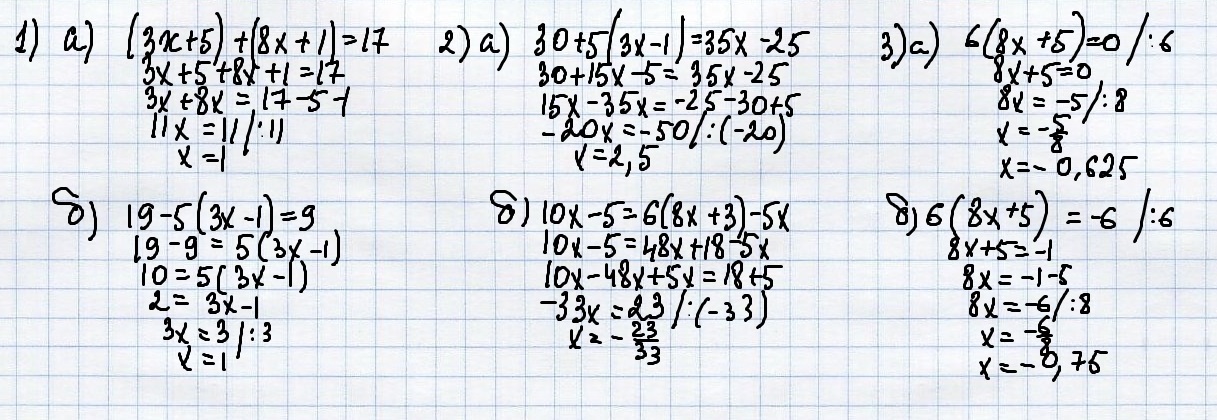 1) а) (3x+5)+(8x+1)=17
3x+5+8x+1=17
3x+8x=17-5-1
11x=11/:11
x=1
б) 19-5(3x-1)=9
19-9=5(3x-1)
10=5(3x-1)
2=3x-1
3x=3/:3
x=1
2) а) 30+5(3x-1)=35x-25
30+15x-5=35x-25
15x-35x=-25-30+5
-20x=-50/:(-20)
x=2,5
б) 10x-5=6(8x+3)-5x
10x-5=48x+18-5x
10x-48x+5x=18+5
-33x=23/:(-33)
x=-23/33
3) а) 6(8x+5)=0/:6
8x+5=0
8x=-5/:8
x=-5/8
x=-0,625
б) 6(8x+5)=-6/:6
8x+5=-1
8x=-1-5
8x=-6/:8
x=-6/8
x=-0,75